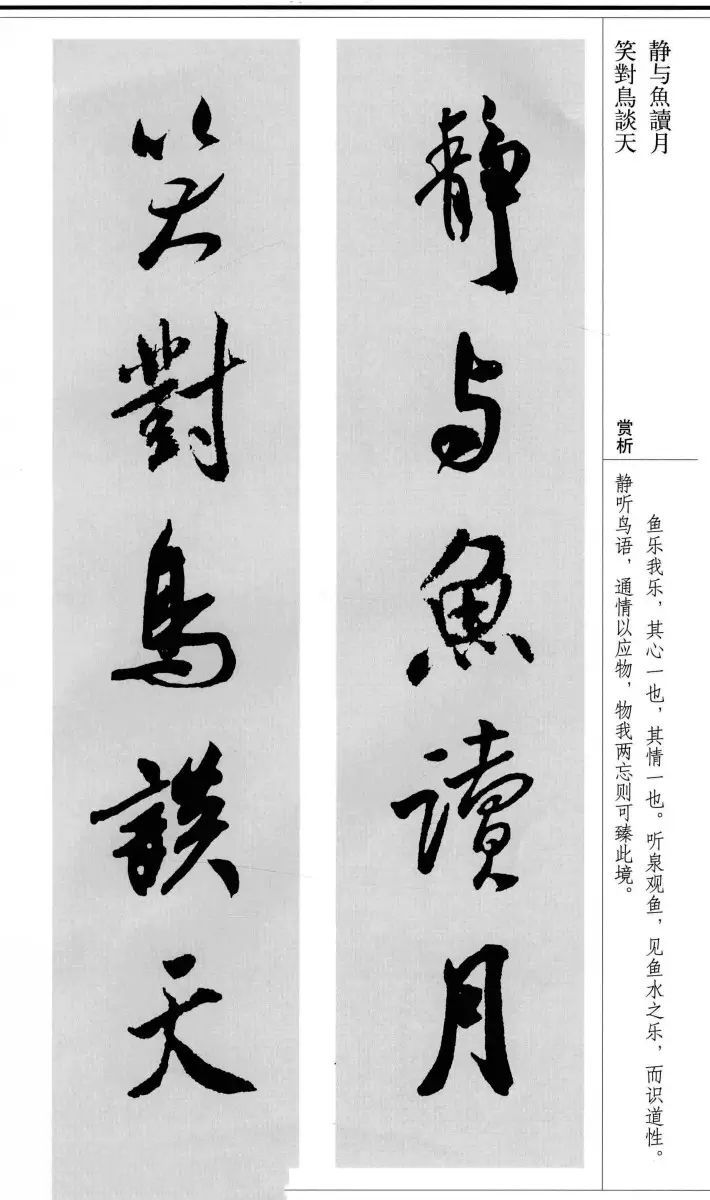 静与魚讀月
笑對鳥談天
赏析
鱼乐我乐，其心一也，其情一也。听泉观鱼，见鱼水之乐，而识道性。
静听鸟语，通情以应物，物我两忘则可臻此境。
静与魚讀月
笑對鳥談天